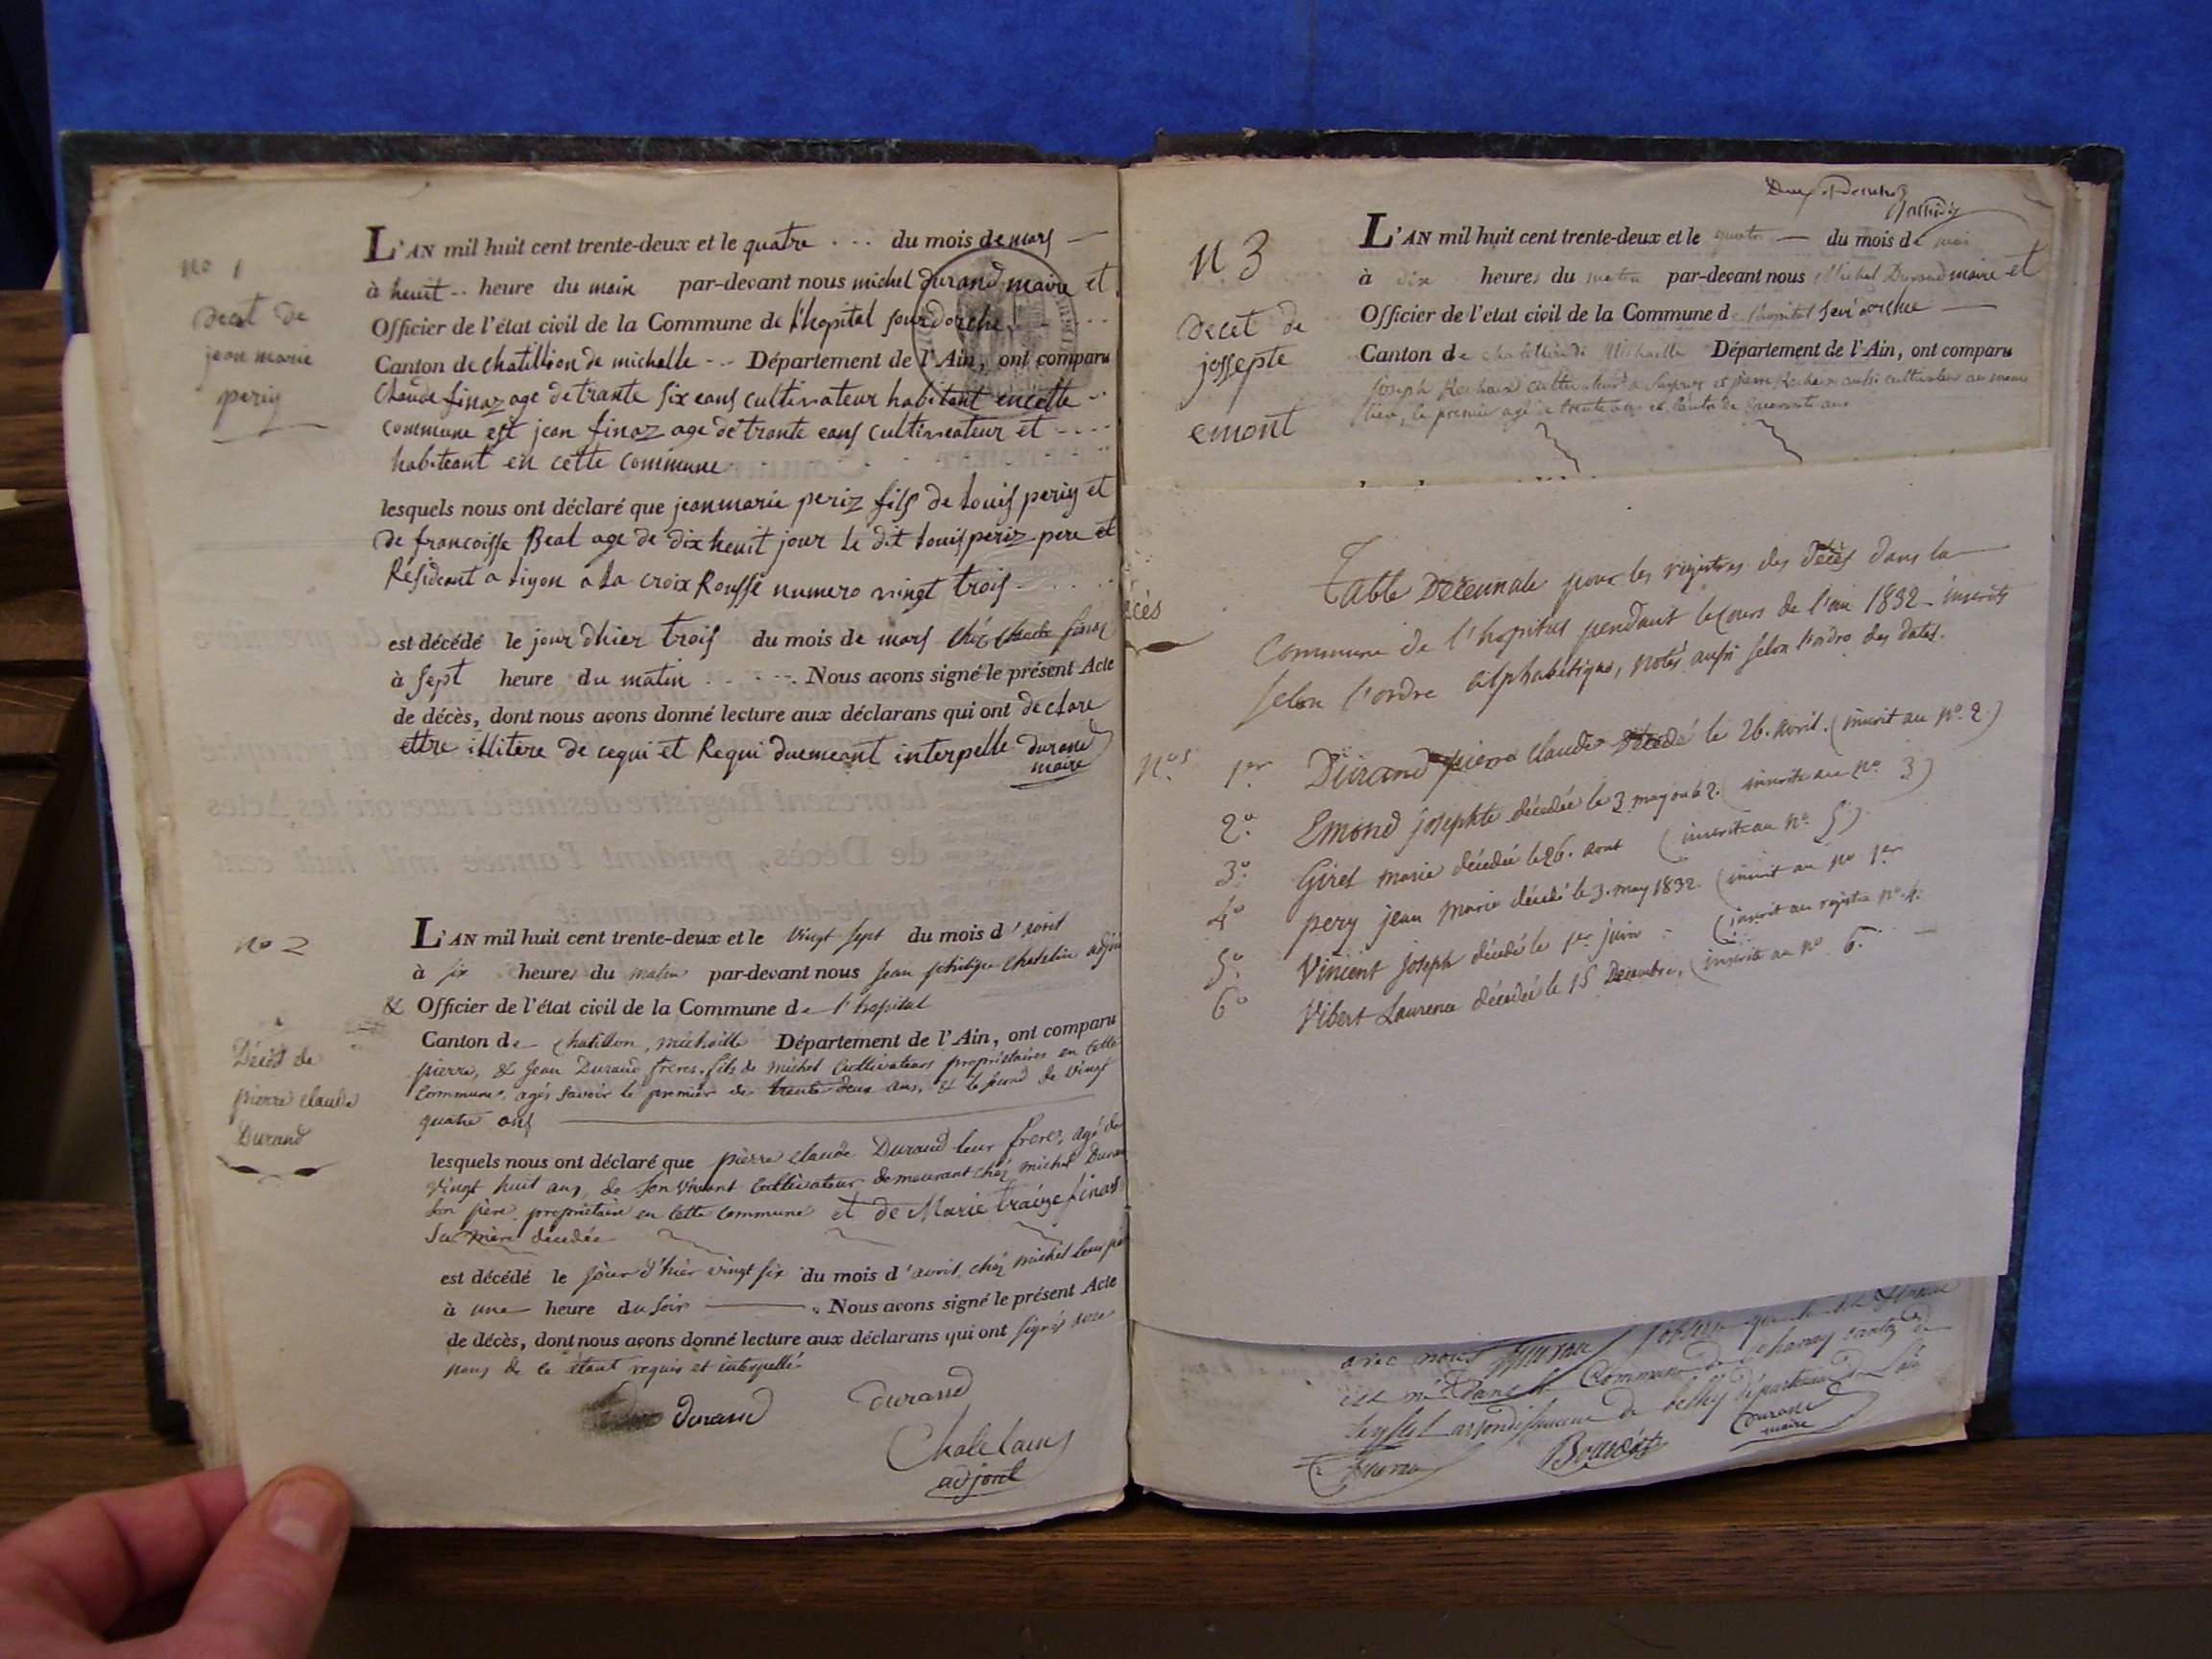 no 1
decet de
jean marie
periz
L'AN mil huit cent trente-deux et le quatre ... du mois de mars —
à heuit .. heure du main par-devant nous michel durand maire et
Officier de l'état civil de la Commune de l'hopital surdorche
Canton de chatillion de michelle -- Département de l'Ain, ont comparu
Claude finaz age de trante six eans cultivateur habitant encette
commune est jean finaz age de trante eans cultiveateur et ----
habiteant en cette commune
lesquels nous ont déclaré que jeanmarie periz fils de Louis periz et
de francoisse Beal age de dix heuit jour le dit Louis periz pere et
Résideant a Liyon a La croix Rousse numero vingt trois
est décédé le jour dhier trois du mois de mars chéz Claude finaz
à sept heure du matin . . - - -. Nous avons signé le présent Acte
de décès, dont nous avons donné lecture aux déclarans qui ont declare
ettre illitere de cequi et Requi duemeant interpelle durand
maire
no 2
Décès de
pierre claude
Durand
L'AN mil huit cent trente-deux et le vingt sept du mois d'avril
à six heures du matin par-devant nous jean philippe chatelain adjoint
& Officier de l'état civil de la Commune de l'hopital
Canton de chatillon, michaille Département de l'Ain, ont comparu
pierre, & Jean Durand freres, fils de michel Cultivateurs propriétaires en cette
Commune, agés savoir le premier de trente deux ans, & le second de vingt
quatre ans
lesquels nous ont déclaré que pierre claude Durand leur frere, agé de
vingt huit ans, de son vivant Cultivateur demeurant chéz michel Durand
son père propriétaire en cette commune et de Marie traize finas
sa mère décedée
est décédé le jour d'hier vingt six du mois d'avril, chéz michel leur père
à une heure du soir — . Nous avons signé le présent Acte
de décès, dont nous avons donné lecture aux déclarans qui ont signés avec
nous de ce étant requis et interpellé.
durand
durand
Chatelain
adjoint
N 3
decet de
jossepte
emont
L'AN mil huit cent trente-deux et le quatre — du mois de mai
à dix heures du matin par-devant nous Michel Durand maire et
Officier de l'état civil de la Commune de l'hopital sur dorche —
Canton de chatillon de Michaille Département de l'Ain, ont comparu
Joseph cultivateur à et pierre aussi cultivateur au meme
lieu, le premier agé de trente ans et l'autre de quarante ans
écès
Table Décennale pour les registres des décès dans la
Commune de l'hopital pendant le cours de l'an 1832 - inscrits
selon l'ordre alphabétique, notés aussi selon l'ordre des dates.
Nos 1er Durand pierre claude décédé le 26. avril. (inscrit au no. 2)
2o. Emond josephte décédée le 3 may (inscrite au no. 3)
3o. Giret marie décédée le 26. aout (inscrite au no. 5)
4o pery jean marie décédé le 3. may 1832. (inscrit au no 1er
5o. Vincent joseph décédé le 1er juin (inscrit au registre no. 4.
6o Vibert Laurence décédée le 15 Décembre, (inscrite au no 6.
avec nous
est né dans la Commune de chanay canton de
seyssel arrondissement de belley département de l'ain
Bourdet
durand
maire